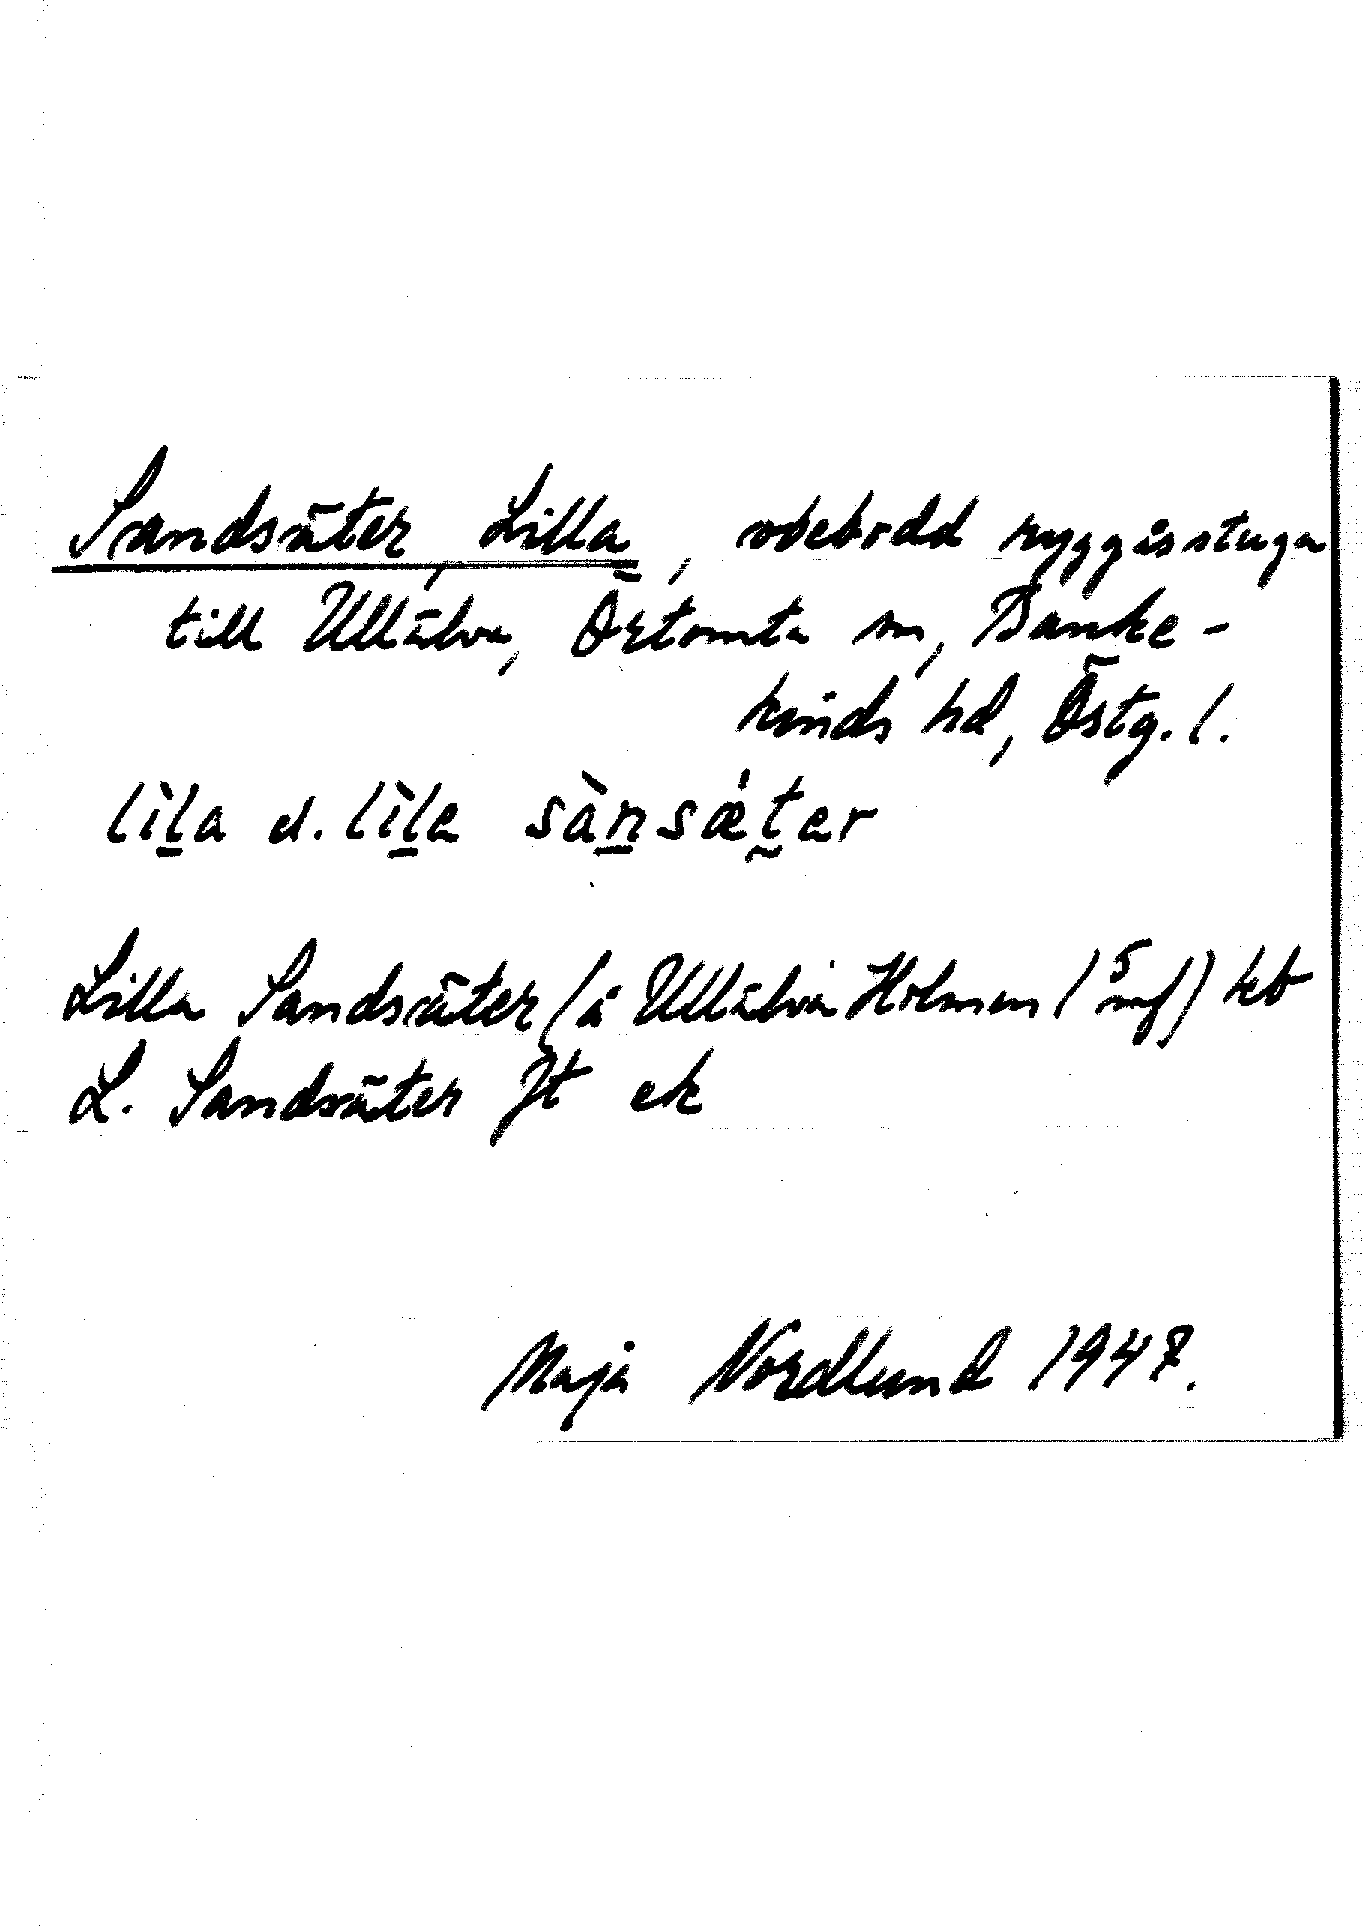 Sandsäter, Lilla, obebodd ryggåsstuga
till Ullälva, Örtomta sn, Banke-
kinds hd, Östg. l.
lìl̲a el. lìl̲e sàn̲sǽt̰er
Lilla Sandsäter (å Ullälva Holmen (5 mf) kb
L. Sandsäter Jt ek
Maja Nordlund 1947.